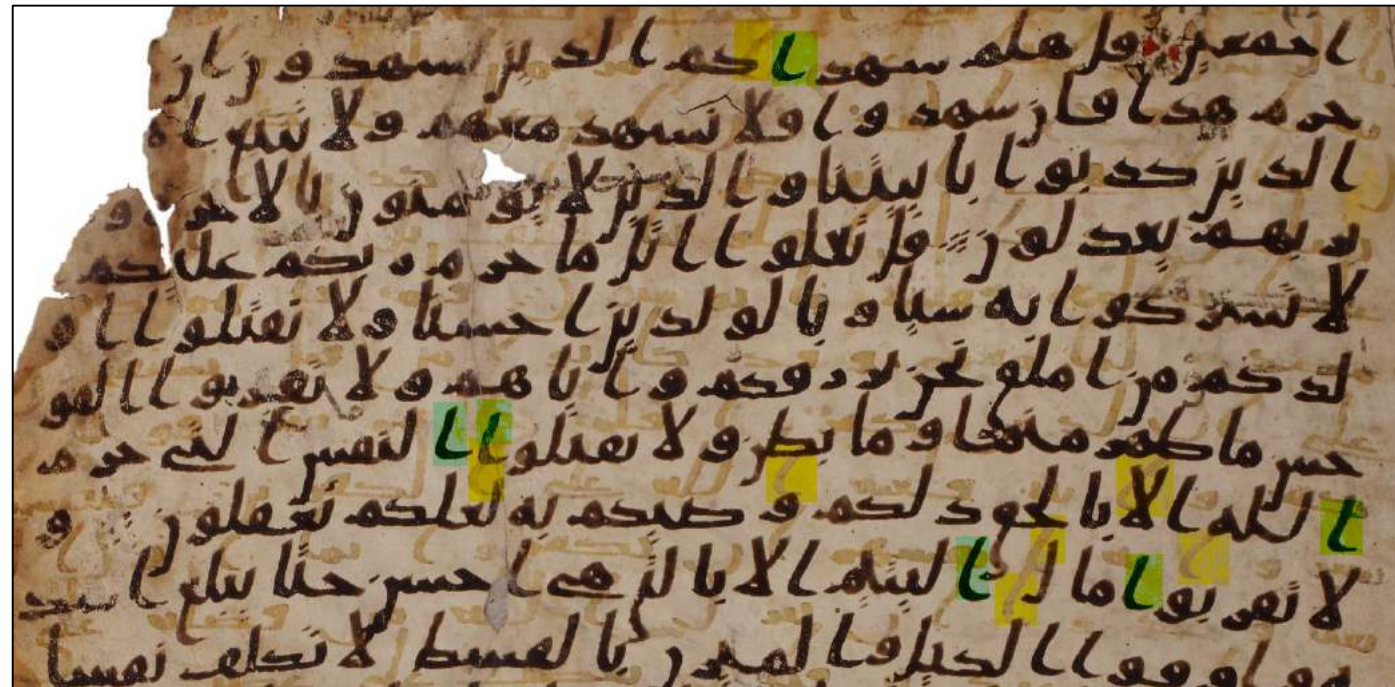 اجمعين قل هلم شهداكم الذين يشهدون ان
حرم هذا فان شهدوا فلا تشهد معهم ولا تتبع اه
الذين كذبوا باييتنا والذين لا يومنون بالاخره و
بربهم يعدلون قل تعلوا اتل ما حرم ربكم عليكم
لا تشركوا به شيا وبالولدين احسنا ولا تقتلوا او
لدكم من املق نحن نرزقكم واياهم ولا تقربوا الفو
حش ما ظهر منها وما بطن ولا تقتلوا النفس التي حرم
الله الا بالحق ذلكم وصيكم به لعلكم تعقلون و
لا تقربوا مال اليتيم الا بالتي هي احسن حتى يبلغ اشد
ه واوفوا الكيل والميزن بالقسط لا نكلف نفسا